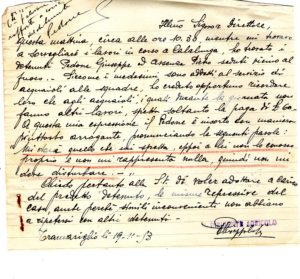 Ill.mo Signor Direttore,
Questa mattina, circa alle ore 10.30 mentre mi
a sorvegliare i lavori in corso a Calalunga, ho trovato i
detenuti Pedone Giuseppe di assenza seduti vicino al
fuoco. - Siccome i medesimi sono addetti al servizio di
acquaioli alle squadre, ho creduto opportuno ricordare
loro che agli acquaioli, i quali la giornata non
fanno altri lavori, spetta soltanto la paga di
A questa mia espressione il Pedone è insorto con maniera
piuttosto arrogante, pronunciando le seguenti parole:
Mi darà quello che mi spetta, eppoi a lei non lo conosco
proprio e non mi rappresenta nulla, quindi non mi
deve disturbare. -"
Chiedo pertanto alla S.V. di voler adottare a carico
del predetto detenuto, le misure repressive del
caso, anche perchè simili inconvenienti non abbiano
a ripetersi con altri detenuti. -
Tramariglio li 19-11-53
AGRICOLO